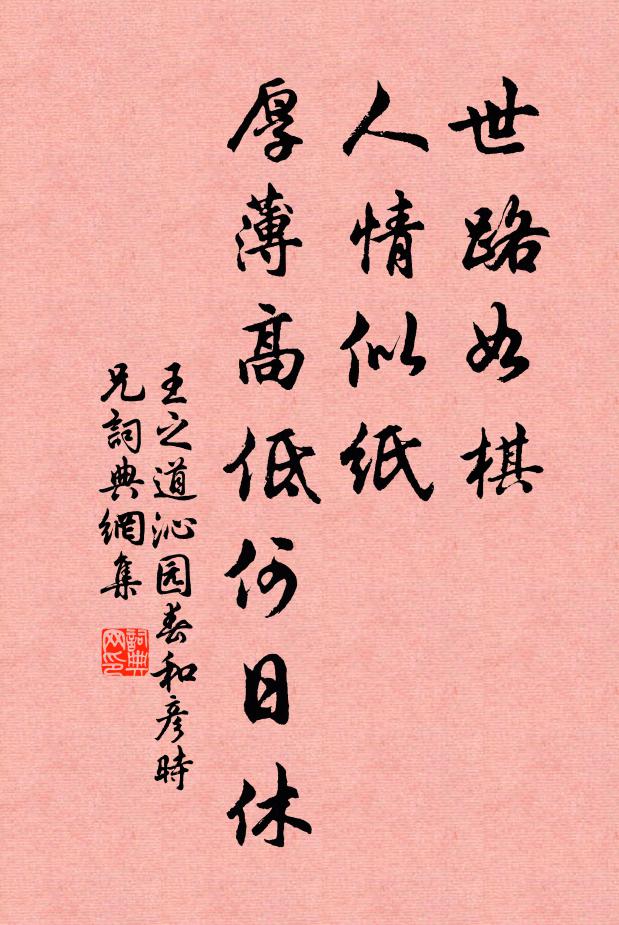 世路如棋
人情似紙
厚薄高低何日休
王之道沁园春和彦時
兄詞典網集
詞典
网印